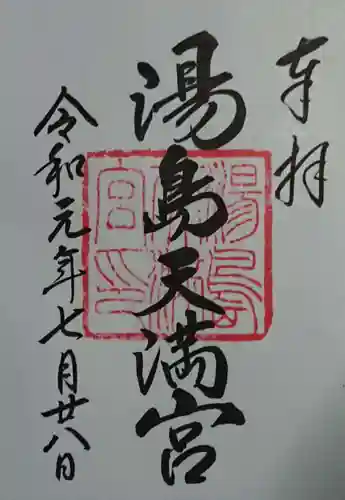 奉拝
湯島天満宮
令和元年七月廿八日